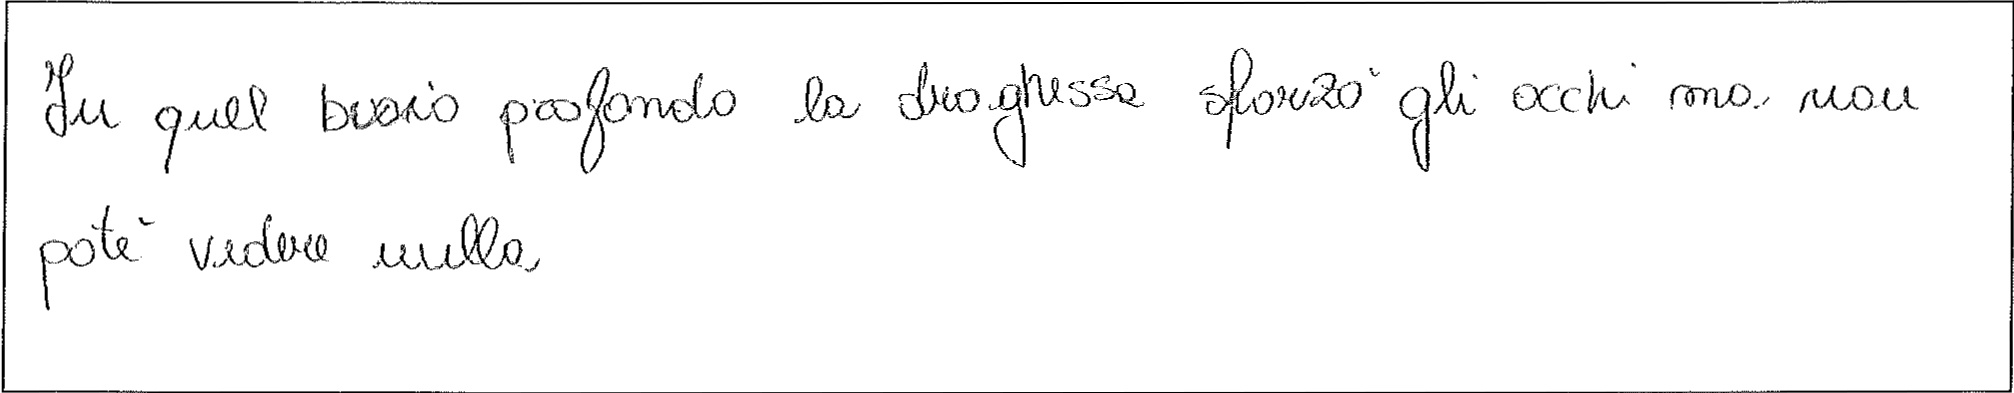 In quel buoio profondo la draghessa sforzò gli occhi ma non
potè vedere nulla